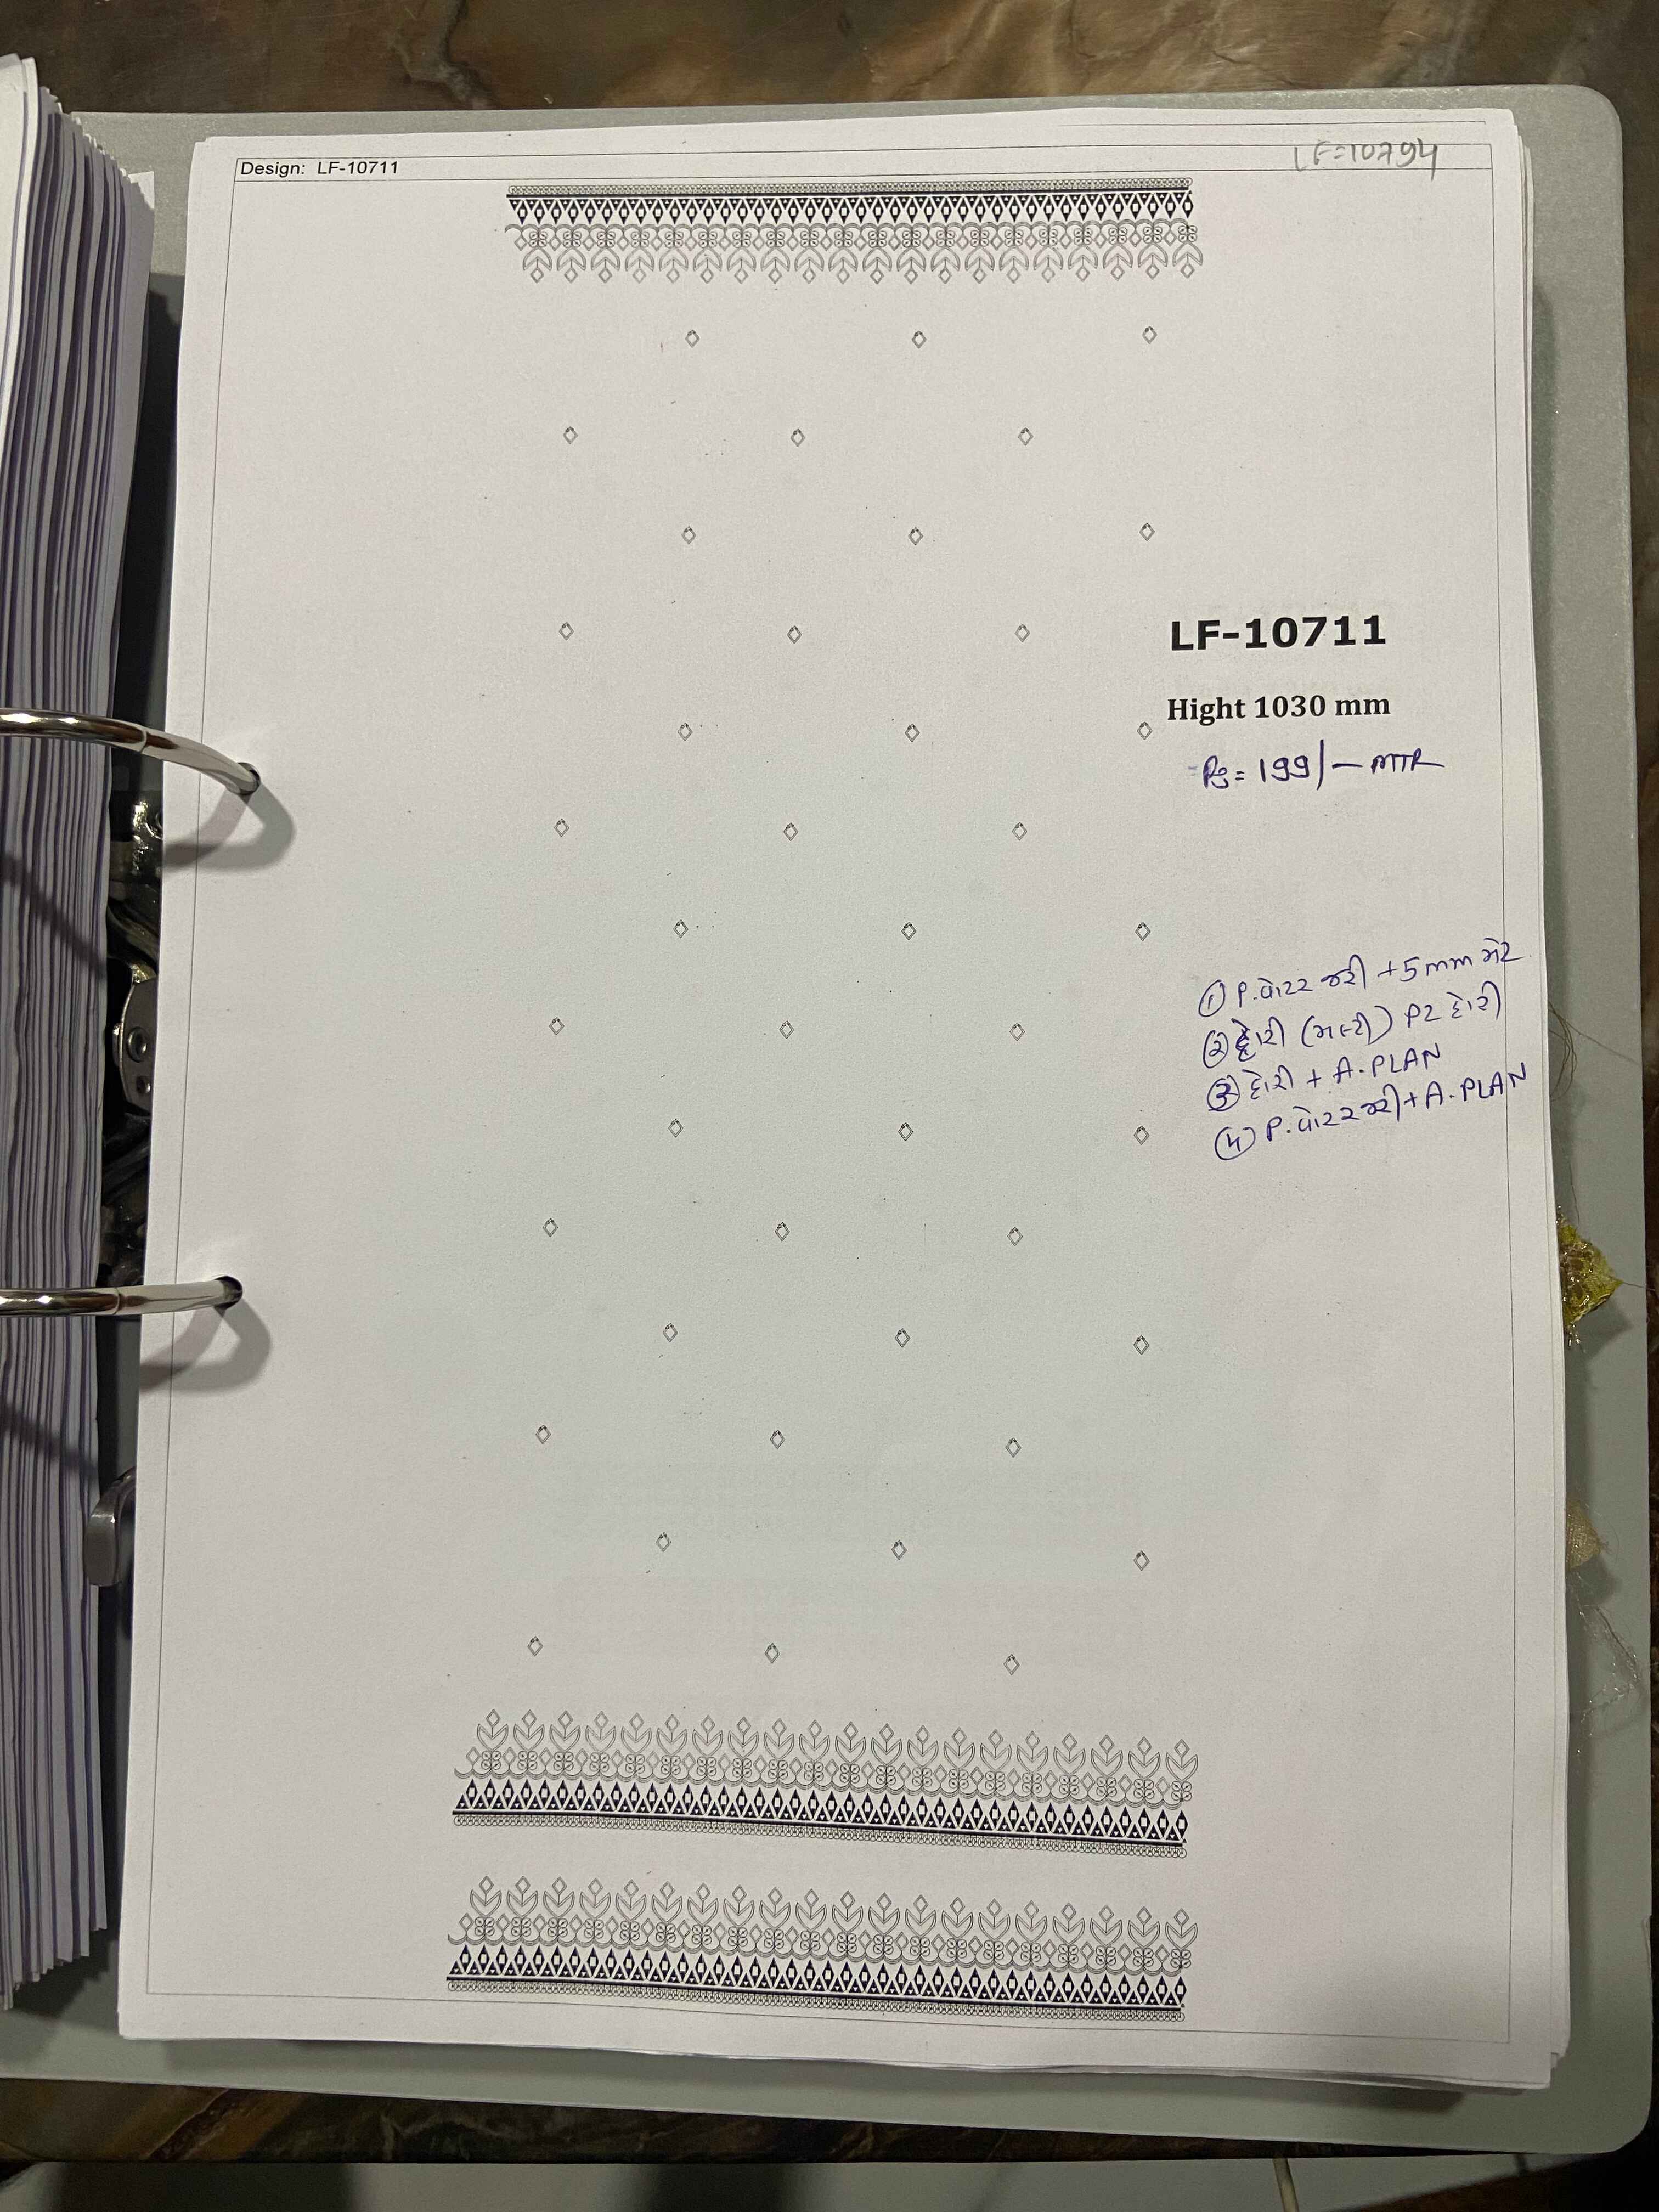 Design: LF-10711
LF=10794
LF-10711
Hight 1030 mm
Rs = 199/- MTR
① P. વોટર જરી + 5 mm
② દોરી દોરી
③ દોરી + A. PLAN
④ P. વોટર જરી + A. PLAN